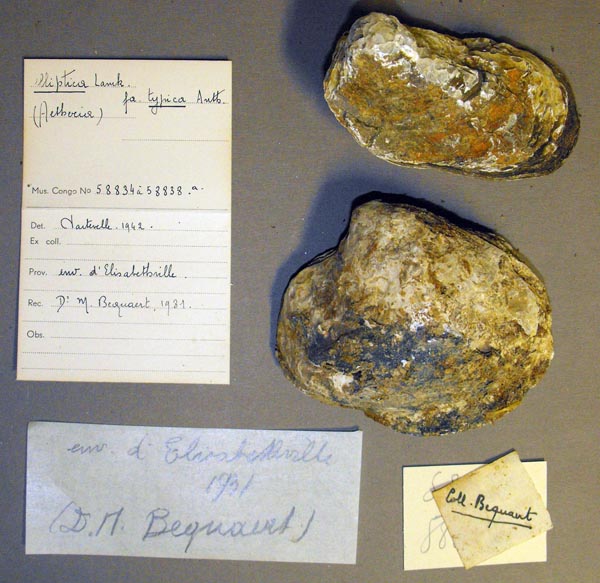 elliptica Lamk.
fa. typica Anth.
(Aetheria)
Mus. Congo No 58834 à 58838.a.
Det. Dartevelle. 1942.
Ex coll.
Prov. env. d'Elisabethville.
Rec. Dr M. Bequaert, 1931.
Obs.
env. d'Elisabethville
1931
(D. M. Bequaert)
Coll. Bequaert